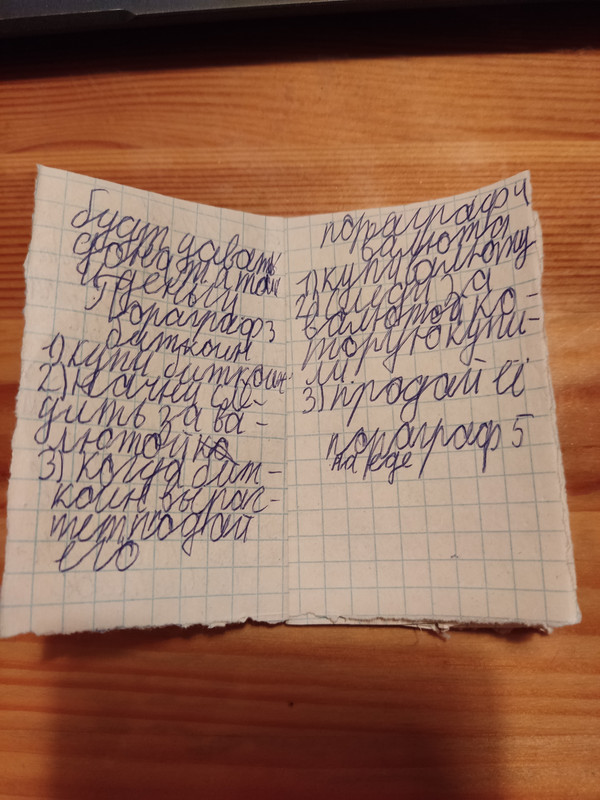 будт давать
донат и там
деньги
Параграф 3
биткоин
1) купи биткоин
2) начни сле-
дить за ва-
лютой
3) когда бит-
коин вырас-
тет продай
его
пораграф 4
валюта
1) купи валюту
2) следи за
валютой ко-
торую купи-
ли
3) продай её
пораграф 5
на еде